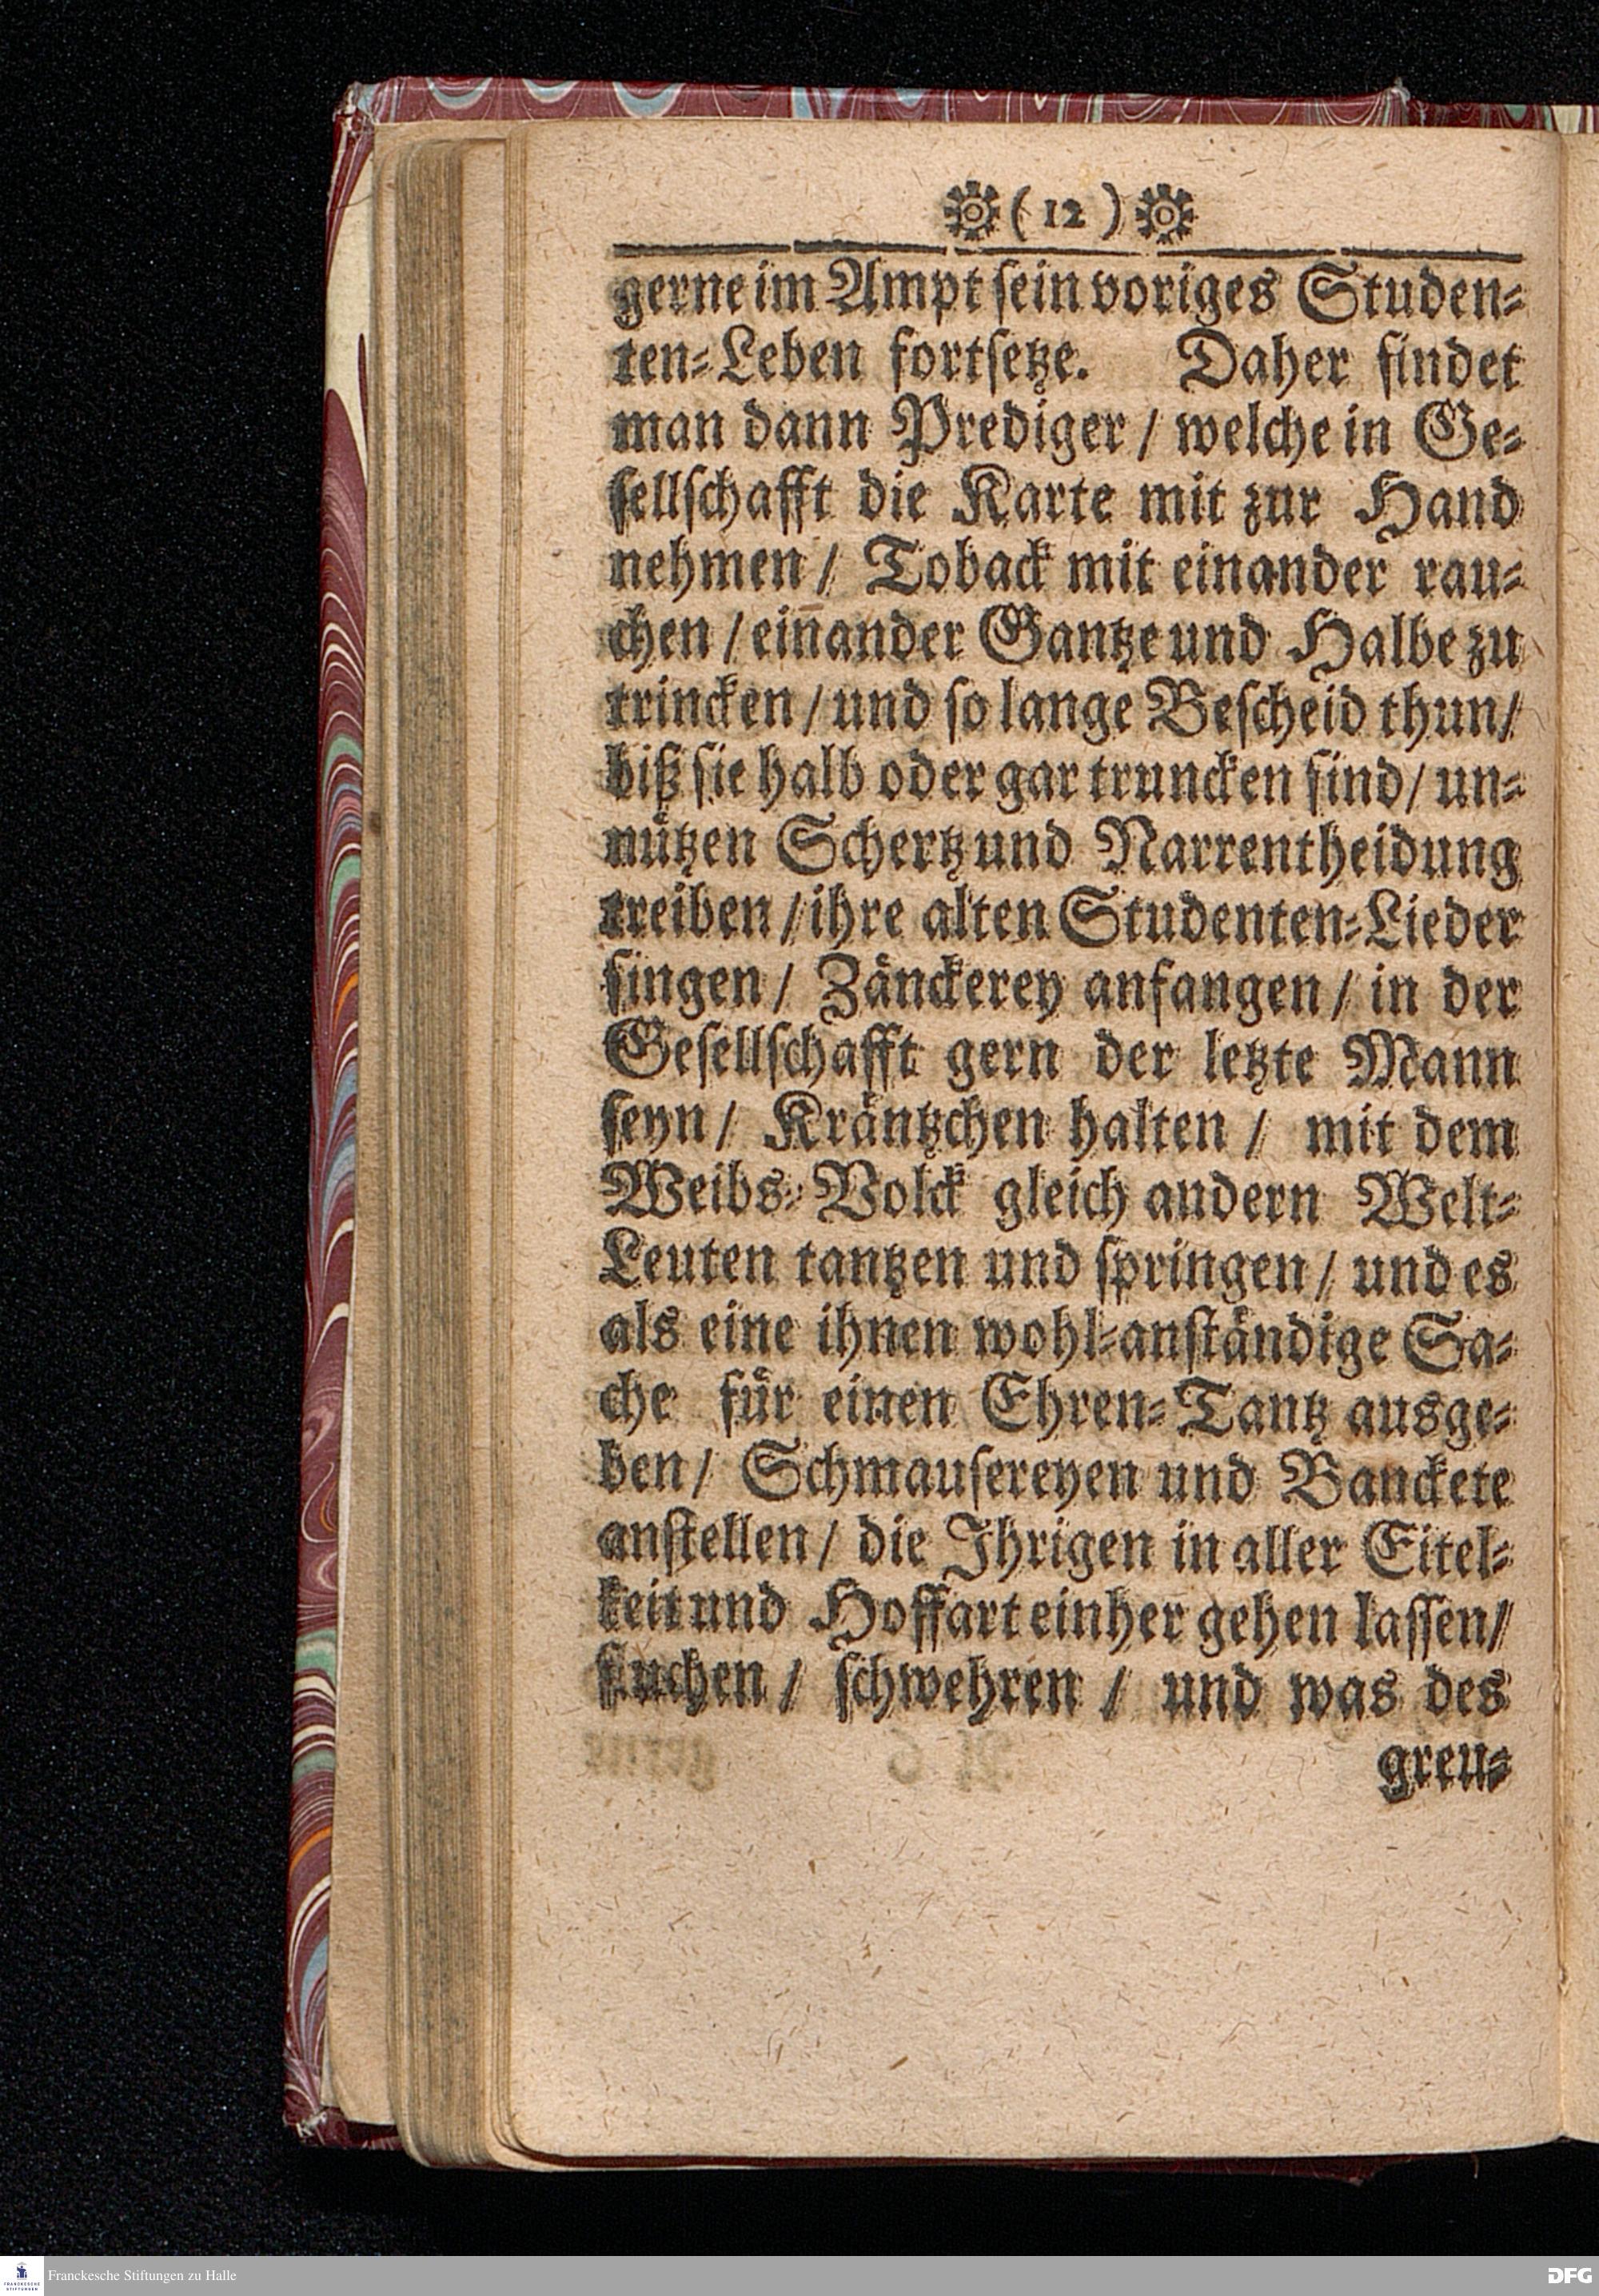 ( 12 )
gerne im Ampt sein voriges Studen-
ten-Leben fortsetze. Daher findet
man dann Prediger / welche in Ge-
sellschafft die Karte mit zur Hand
nehmen / Toback mit einander rau-
chen / ein̄ander Gantze und Halbe zu
trincken / und so lange Bescheid thun /
biß sie halb oder gar truncken sind / un-
nützen Schertz und Narrentheidung
treiben / ihre alten Studenten-Lieder
singen / Zänckerey anfangen / in der
Gesellschafft gern der letzte Mann
seyn / Kräntzchen halten / mit dem
Weibs-Volck gleich andern Welt-
Leuten tantzen und springen / und es
als eine ihnen wohl-anständige Sa-
che für einen Ehren-Tantz ausge-
ben / Schmausereyen und Banckete
anstellen / die Ihrigen in aller Eitel-
keit und Hoffart einher gehen lassen /
fluchen / schwehren / und was des
greu-
FRANCKESCHE STIFTUNGEN
Franckesche Stiftungen zu Halle
DFG